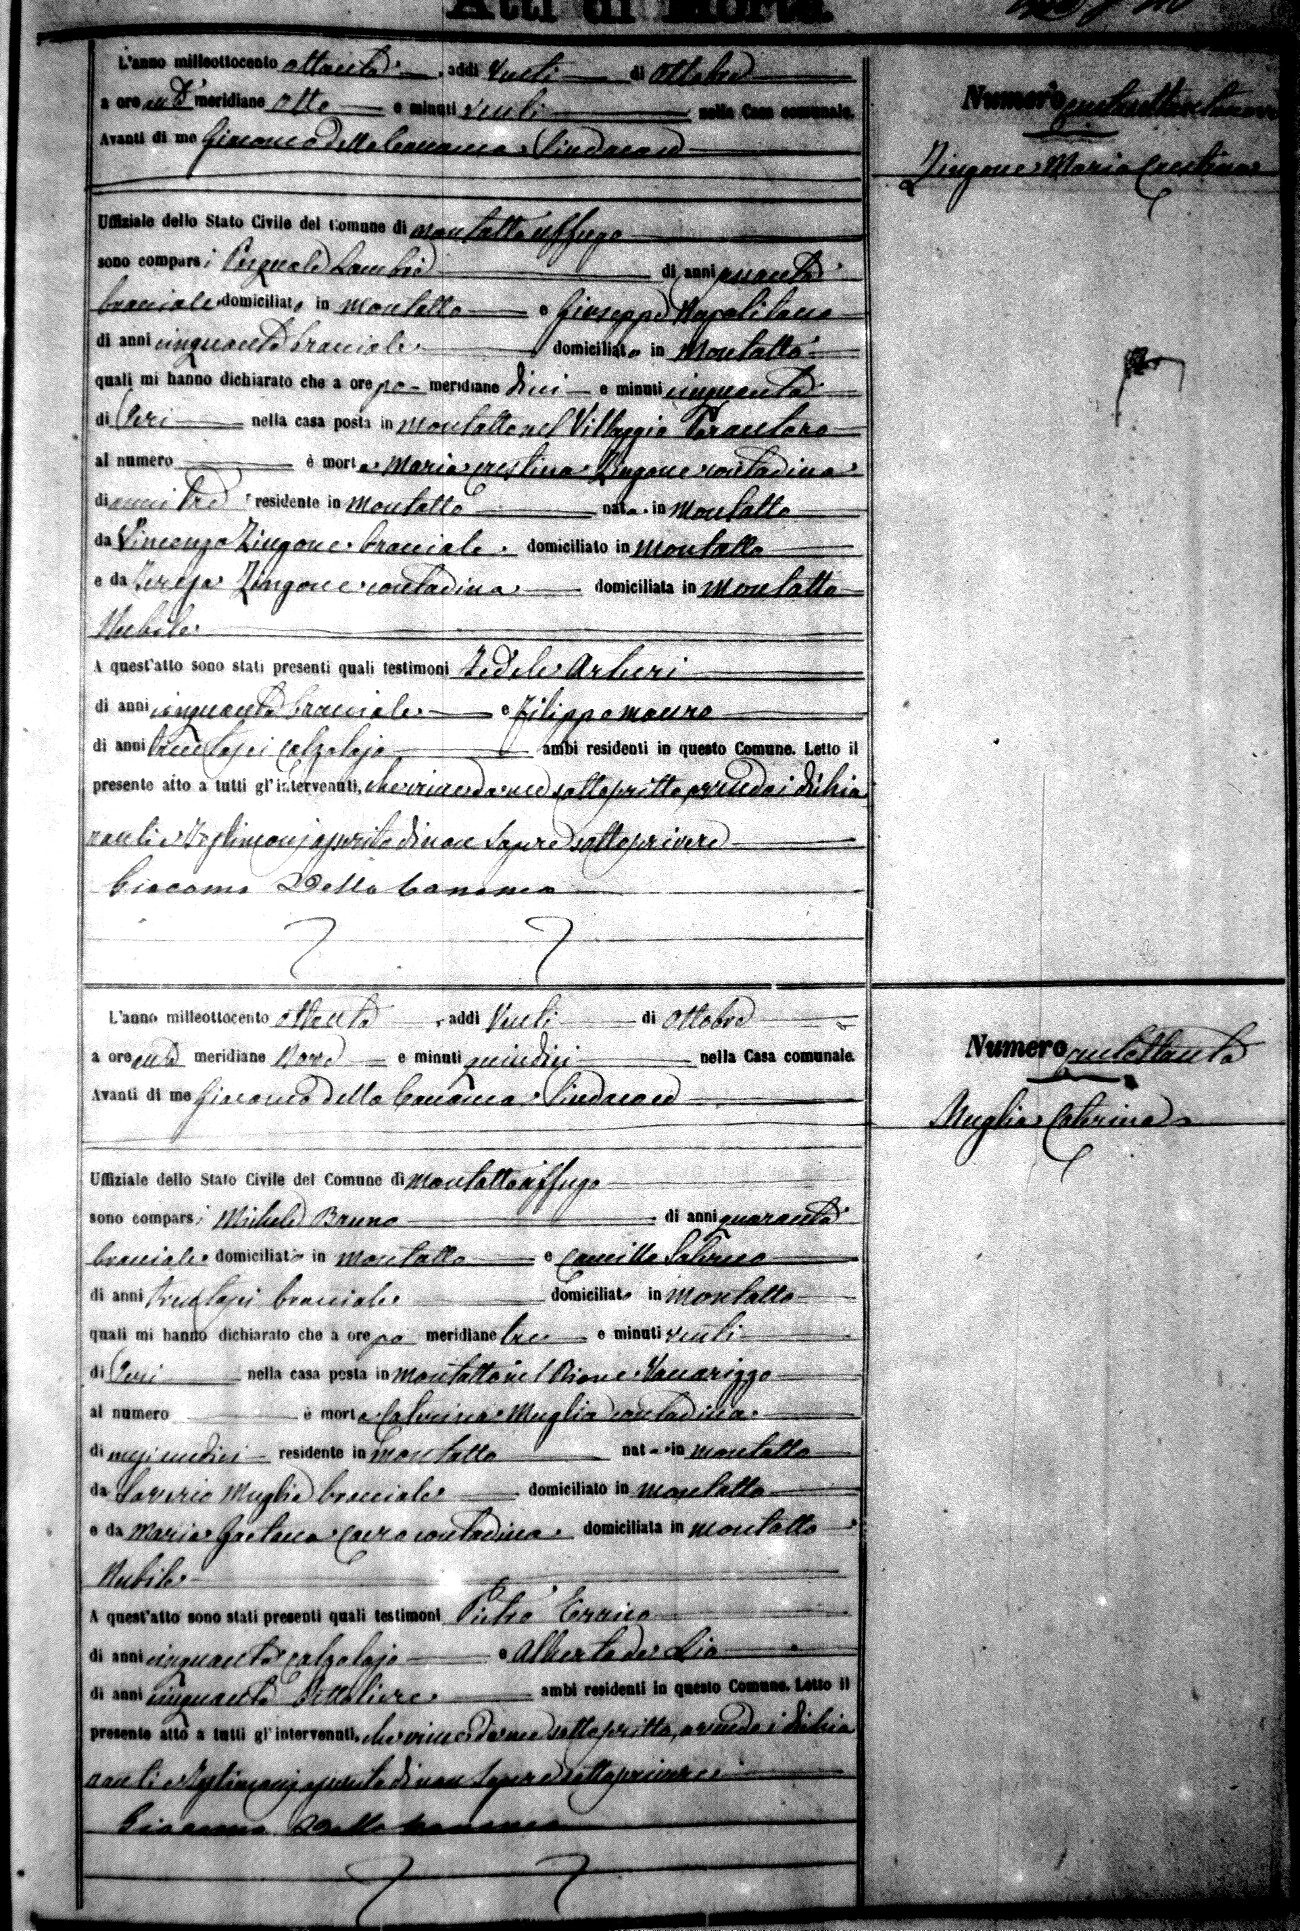 Atti di Morte
L'anno milleottocento ottanta, addi Venti di Ottobre
a ore anti meridiane Otto e minuti venti nella Casa comunale.
Avanti di me Giacomo Della Cananea Sindaco
Numero
Zingone Maria Crestina
Uffiziale dello Stato Civile del Comune di Montalto Uffugo
sono comparsi Pasquale di anni
bracciale domiciliato in Montalto e Giuseppe Napolitano
di anni cinquanta bracciale domiciliato in Montalto
quali mi hanno dichiarato che a ore po meridiane dieci e minuti cinquanta
di Ieri nella casa posta in Montalto nel Villaggio Parantoro
al numero è morta Maria Crestina Zingone contadina
di anni tre residente in Montalto nata in Montalto
da Vincenzo Zingone bracciale domiciliato in Montalto
e da Teresa Zingone contadina domiciliata in Montalto
Nubile
A quest'atto sono stati presenti quali testimoni Fedele Artieri
di anni cinquanta bracciale e Filippo Mauro
di anni trentasei calzolajo ambi residenti in questo Comune. Letto il
presente atto a tutti gl'intervenuti, che viene da me sottoscritto, avendo i dichia
ranti e Testimonj asserito di non sapere sottoscrivere
Giacomo Della Cananea
L'anno milleottocento ottanta, addi Venti di Ottobre
a ore anti meridiane Nove e minuti quindici nella Casa comunale.
Avanti di me Giacomo Della Cananea Sindaco
Numero
Muglia Caterina
Uffiziale dello Stato Civile del Comune di Montalto Uffugo
sono comparsi Michele Bruno di anni quaranta
bracciale domiciliato in Montalto e Camillo Salerno
di anni trentasei bracciale domiciliato in Montalto
quali mi hanno dichiarato che a ore po meridiane tre e minuti venti
di Ieri nella casa posta in Montalto nel Rione Vaccarizzo
al numero è morta Caterina Muglia contadina
di mesi undici residente in Montalto nata in Montalto
da Saverio Muglia bracciale domiciliato in Montalto
e da Maria Gaetana contadina domiciliata in Montalto
Nubile
A quest'atto sono stati presenti quali testimoni Pietro Errico
di anni cinquanta calzolajo e Alberto de Lio
di anni cinquanta Bettoliere ambi residenti in questo Comune. Letto il
presente atto a tutti gl'intervenuti, che viene da me sottoscritto, avendo i dichia
ranti e Testimonj asserito di non sapere sottoscrivere
Giacomo Della Cananea